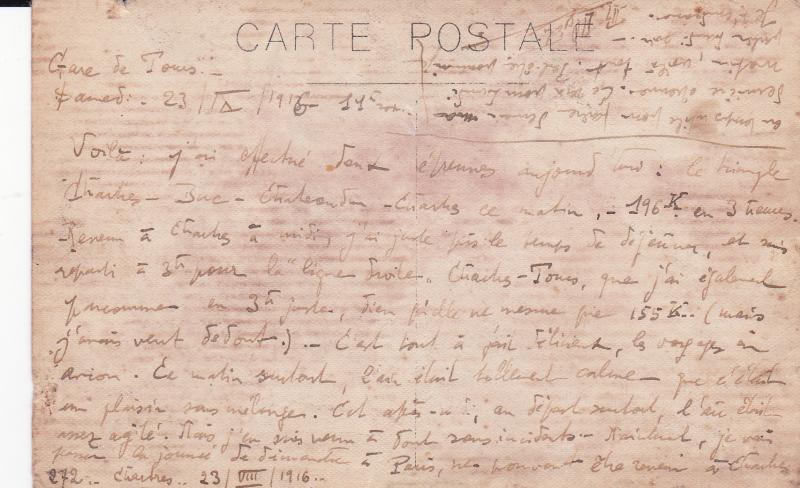 CARTE POSTALE
Gare de Tours. –
Samedi. – 23 / IX / 1916 –
Voilà : j'ai effectué deux épreuves aujourd'hui : le triangle
Chartres – Buc – Chateaudun – Chartres ce matin, – 196 K en 3 heures.
Revenu à Chartres à midi, j'ai juste pris le temps de déjeuner, et suis
reparti à 3h pour la "ligne droite" Chartres – Tours, que j'ai également
parcourue en 3h juste, bien qu'elle ne mesure que 155 K. (mais
j'avais vent debout.) – C'est tout à fait délicieux, les voyages en
avion. Ce matin surtout, l'air était tellement calme que c'était
un plaisir sans mélange. Cet après-midi, au départ surtout, l'air était
assez agité. Mais j'en suis venu à bout sans incidents. – Maintenant, je vais
passer la journée de dimanche à Paris, ne pouvant être revenu à Chartres
en temps utile pour faire
dernière épreuve. Ce
matin,
272.. Chartres.. 23 / VIII / 1916..